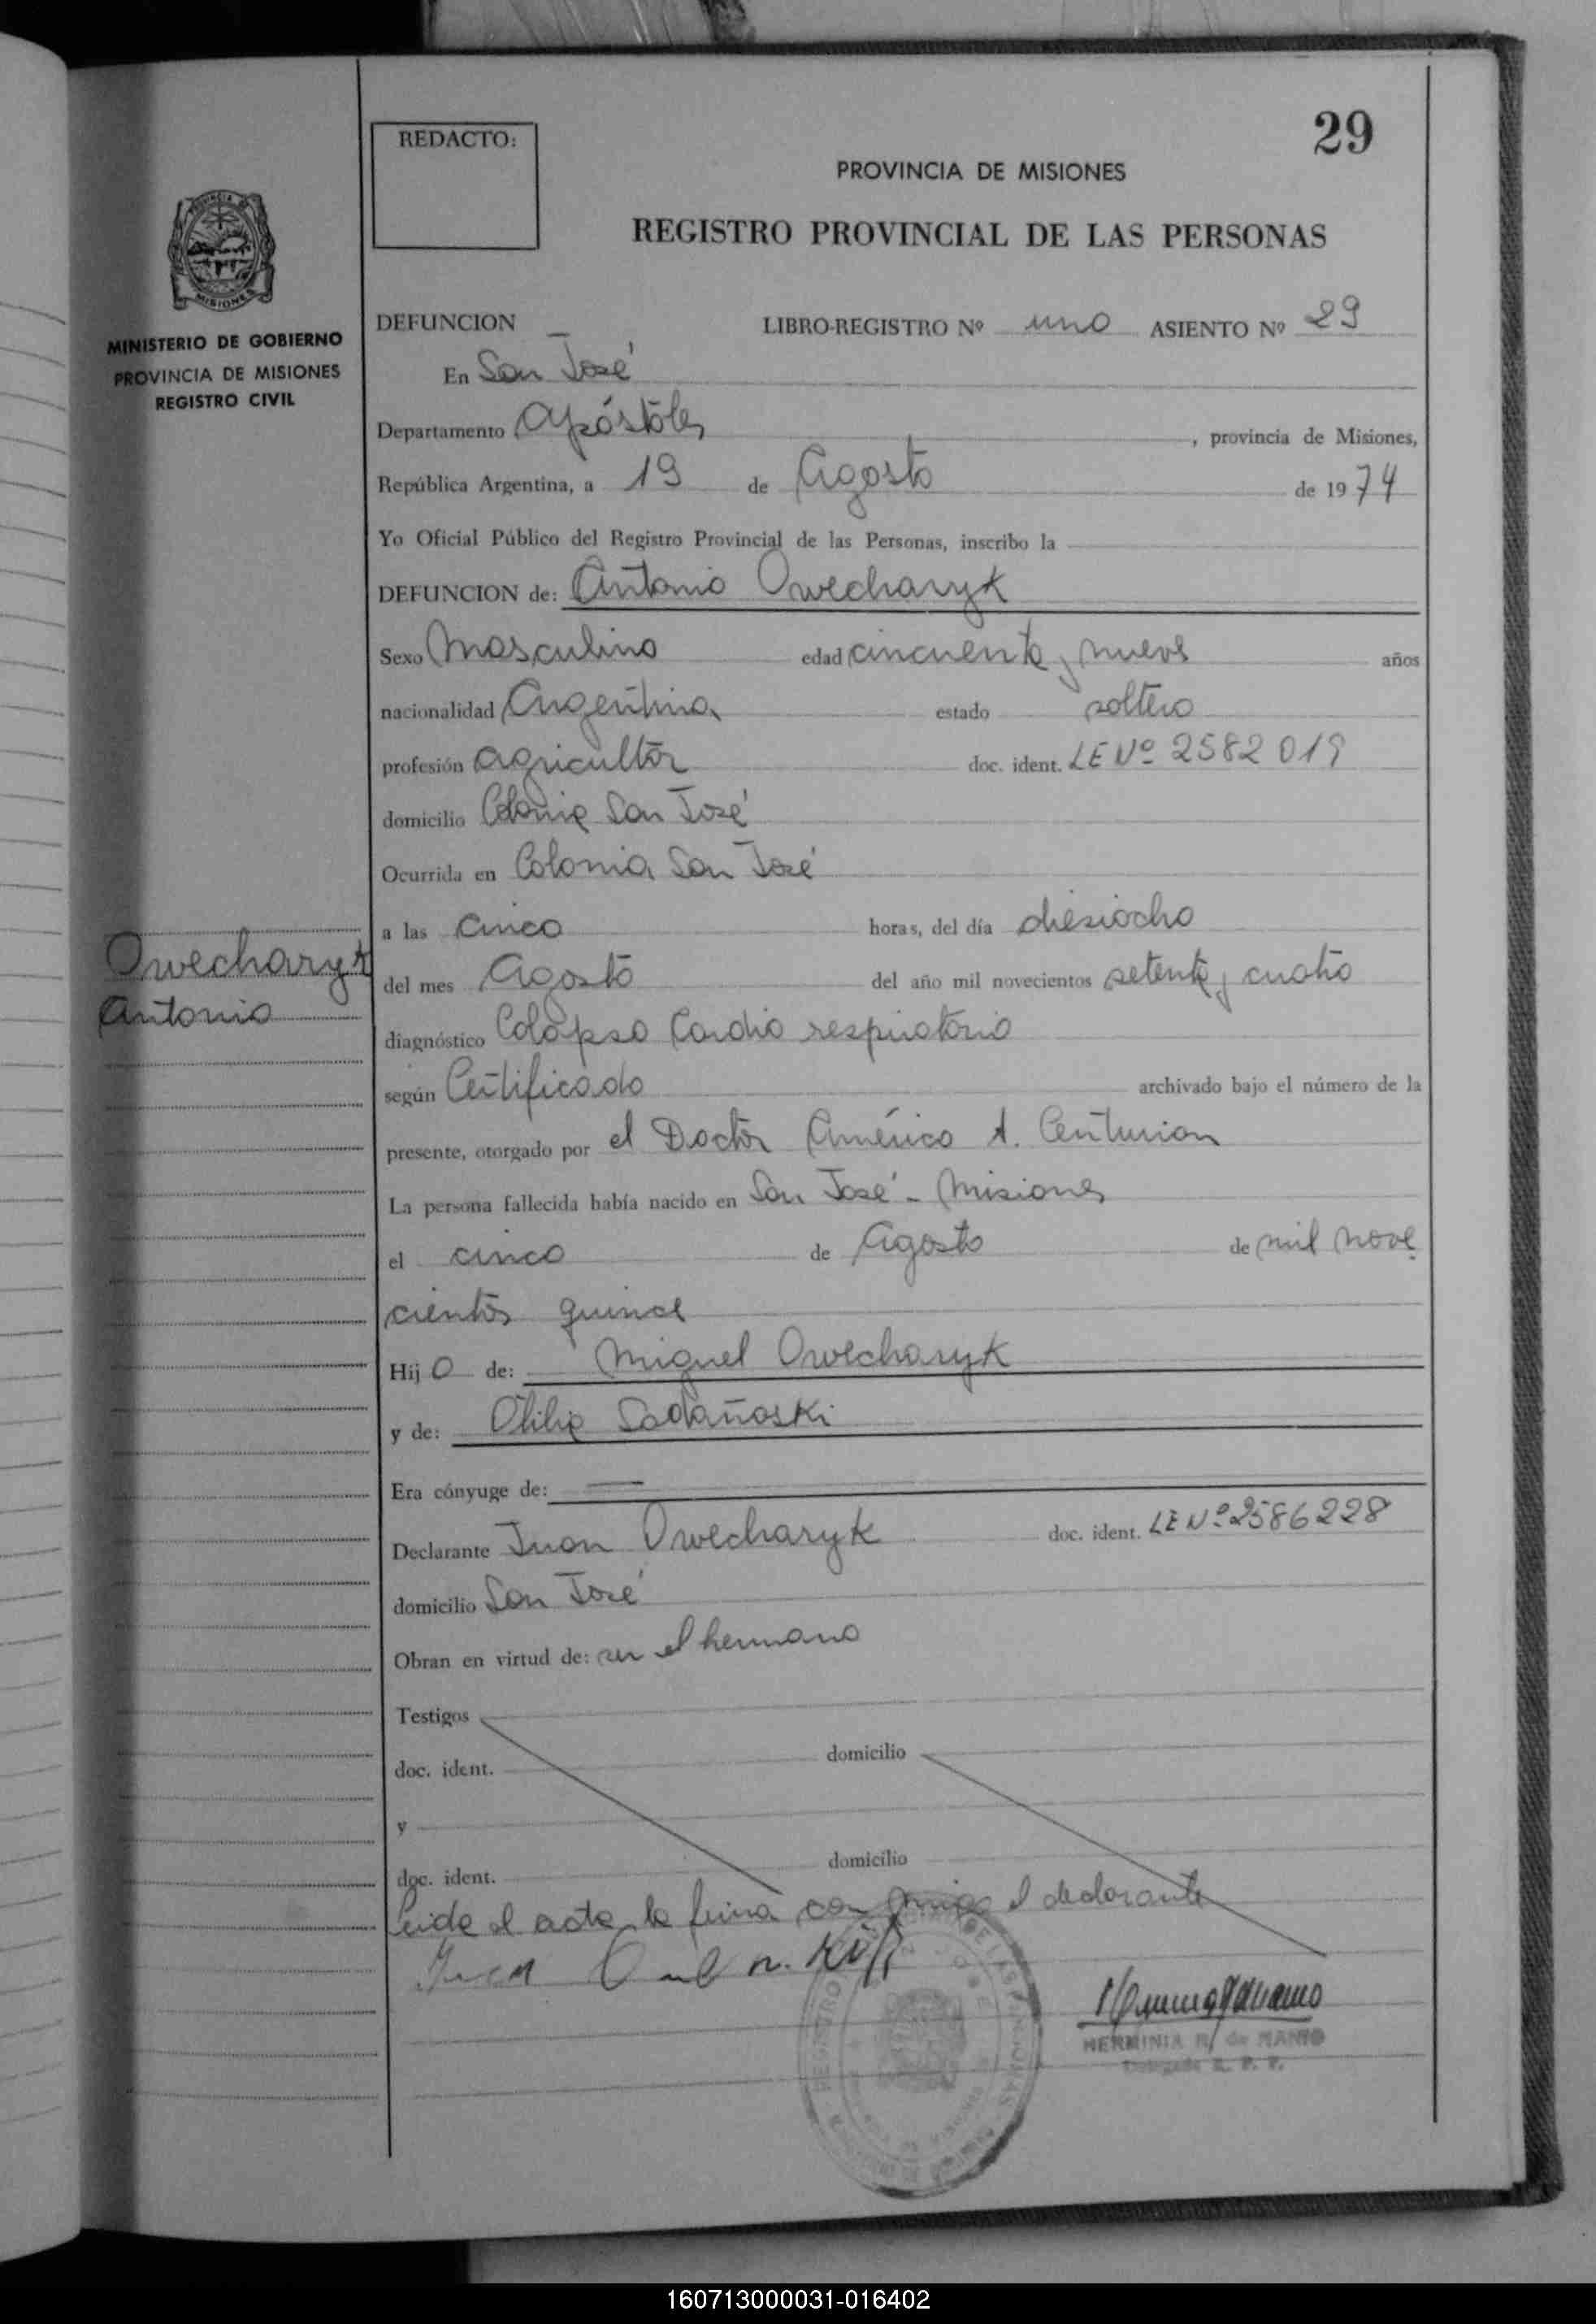 29
REDACTO:
PROVINCIA DE MISIONES
REGISTRO PROVINCIAL DE LAS PERSONAS
MINISTERIO DE GOBIERNO
PROVINCIA DE MISIONES
REGISTRO CIVIL
DEFUNCION LIBRO-REGISTRO Nº uno ASIENTO Nº 29
En San José
Departamento Apóstoles, provincia de Misiones,
República Argentina, a 19 de Agosto de 1974
Yo Oficial Público del Registro Provincial de las Personas, inscribo la
DEFUNCION de: Antonio Owecharyk
Sexo Masculino edad cincuenta y nueve años
nacionalidad Argentina estado soltero
profesión agricultor doc. ident. LE Nº 2582 019
domicilio Colonia San José
Ocurrida en Colonia San José
a las cinco horas, del día diesiocho
Owecharyk
Antonio
del mes Agosto del año mil novecientos setenta y cuatro
diagnóstico Colapso Cardio respiratorio
según Certificado archivado bajo el número de la
presente, otorgado por el Doctor Américo A. Centurion
La persona fallecida había nacido en San José - Misiones
el cinco de Agosto de mil nove
cientos quince
Hijo de: Miguel Owecharyk
y de: Otilia Sadañoski
Era cónyuge de: —
Declarante Juan Owecharyk doc. ident. LE Nº 2586228
domicilio San José
Obran en virtud de: ser el hermano
Testigos
doc. ident. domicilio
y
doc. ident. domicilio
Leida el acta la firma conmigo el declarante
Juan
HERMINIA R. de MANIO